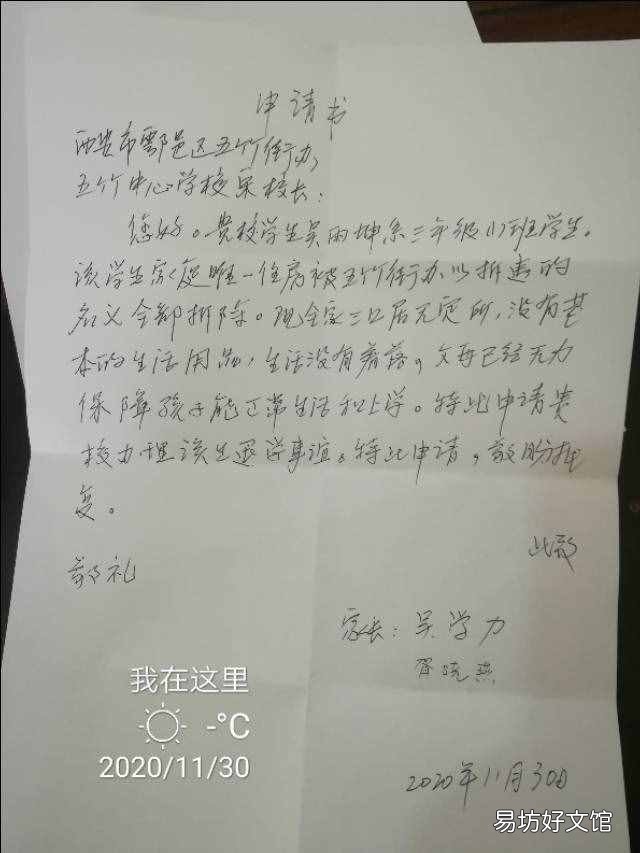 申请书
西安市鄠邑区五竹街办
五竹中心学校宋校长:
您好。贵校学生吴雨坤系三年级(1)班学生。
该学生家庭唯一住房被五竹街办以拆违的
名义全部拆除。现全家三口居无定所,没有基
本的生活用品,生活没有着落。父母已经无力
保障孩子能正常生活和上学。特此申请贵
校办理该生退学事宜。特此申请,敬盼批
复。
此致
敬礼
家长:吴学力
晓燕
2020年11月30日
我在这里
-°C
2020/11/30
易坊好文馆